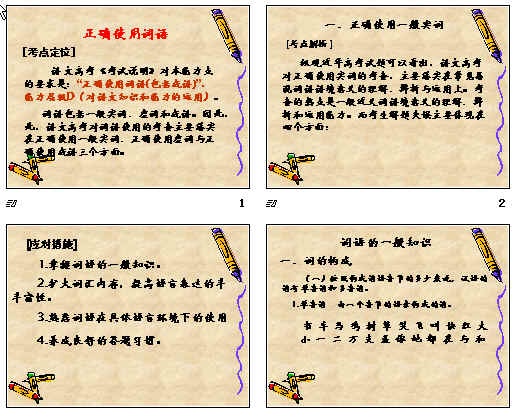 正确使用词语
[考点定位]
语文高考《考试说明》对本能力点
的要求是：“正确使用词语(包括成语)”，
能力层级D（对语文知识和能力的运用）。
词语包括一般实词、虚词和成语。因此，
此，语文高考对词语使用的考查主要落实
在正确使用一般实词、正确使用虚词与正
确使用成语三个方面。
1
一、正确使用一般实词
[考点解析]
纵观近年高考试题可以看出，语文高考
对正确使用实词的考查，主要落实在常见易
误词语语境意义的理解、辨析与运用上。考
查的热点是一般近义词语境意义的理解、辨
析和运用能力。而考生解题失误主要体现在
四个方面：
2
[应对措施]
1.掌握词语的一般知识。
2.扩大词汇内容，提高语言表达的丰
丰富性。
3.熟悉词语在具体语言环境下的使用
4.养成良好的答题习惯。
词语的一般知识
一、词的构成
（一）按照构成词语音节的多少来说，汉语的
词有单音词和多音词。
1.单音词 由一个音节的语素构成的词。
书 车 马 鸟 封 草 哭 飞 叫 快 红 大
小 一 二 万 支 盒 你 她 都 在 与 和